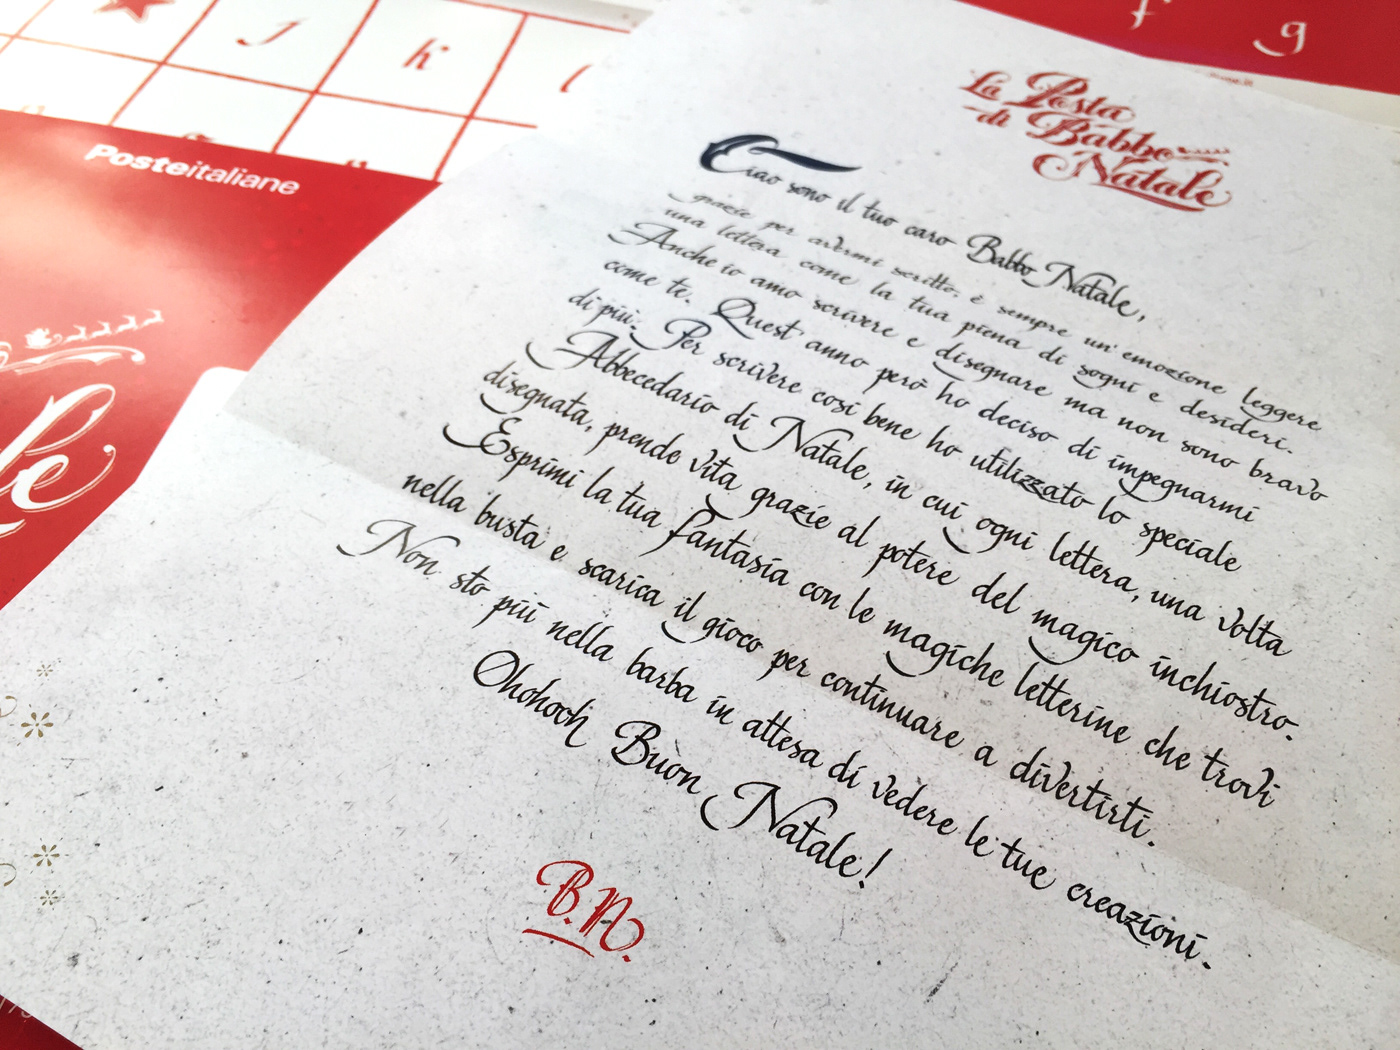 J
K
f
g
Posteitaliane
le
La Posta
di Babbo
Natale
Ciao sono il tuo caro Babbo Natale,
grazie per avermi scritto. è sempre un'emozione leggere
una lettera come la tua piena di sogni e desideri.
Anche io amo scrivere e disegnare ma non sono bravo
come te. Quest'anno però ho deciso di impegnarmi
di più. Per scrivere così bene ho utilizzato lo speciale
Abbecedario di Natale, in cui ogni lettera, una volta
disegnata, prende vita grazie al potere del magico inchiostro.
Esprimi la tua fantasia con le magiche letterine che trovi
nella busta e scarica il gioco per continuare a divertirti.
Non sto più nella barba in attesa di vedere le tue creazioni.
Ohohooh Buon Natale!
B.N.